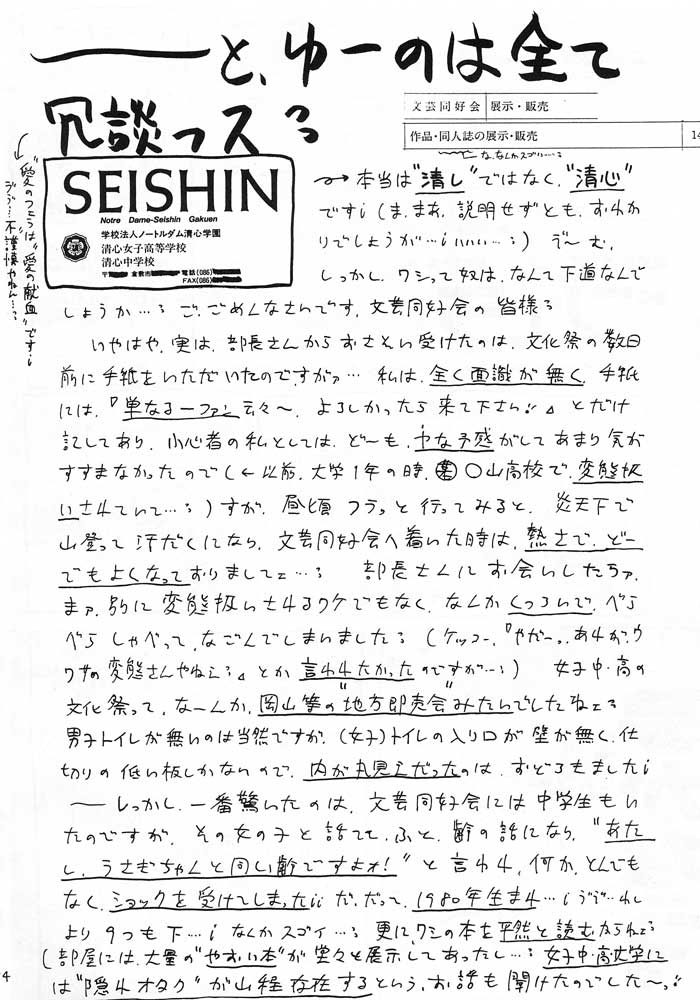 ――と、ゆーのは全て
冗談っス
文芸同好会 展示・販売
作品・同人誌の展示・販売 14
な、なんかスゴい…
SEISHIN
Notre Dame-Seishin Gakuen
学校法人ノートルダム清心学園
清心女子高等学校
清心中学校
〒 倉敷市 電話(086)
FAX(086)
"愛のフェラは"愛の献血"です
ジョ…不謹慎やねん…
→本当は"清し"ではなく、"清心"
です¡(ま、まあ、説明せずとも、おわか
りでしょうが…¡いいい…)う〜む、
しっかし、ワシって奴は、なんて下道なんで
しょうか…ご、ごめんなさいです、文芸同好会の皆様
いやはや、実は、部長さんからおさそい受けたのは、文化祭の数日
前に手紙をいただいたのですがァ… 私は、全く面識が無く、手紙
には、『単なる一ファン云々〜、よろしかったら来て下さい』とだけ
記してあり、小心者の私としては、ど〜も、ヤな予感がしてあまり気が
すすまなかったので(←以前、大学1年の時、○山高校で、変態扱
いされていて…)すが、昼頃フラっと行ってみると、炎天下で
山登って汗だくになり、文芸同好会へ着いた時は、熱さで、どー
でもよくなっておりましてェ… 部長さんにお会いしたらァ、
まァ、別に変態扱いされるワケでもなく、なんかくつろいで、べら
べらしゃべって、なごんでしまいました(ケッコー、『やだーっ、あれが、ウ
ワサの変態さんやねえ』とか言われたかったのですが…) 女子中・高の
文化祭って、なーんか、岡山等の"地方即売会"みたいでしたねェ
男子トイレが無いのは当然ですが、(女子)トイレの入り口が壁が無く、仕
切りの低い板しかないので、内が丸見えだったのは、おどろきました¡
――しっかし、一番驚いたのは、文芸同好会には中学生もい
たのですが、その女の子と話してて、ふと、齢の話になり、"あた
し、うさぎちゃんと同い齢ですよォ!"と言われ、何か、とんでも
なく、ショックを受けてしまった¡¡だ、だって、1980年生まれ…¡うう…わし
より9つも下…¡なんかスゴイ… 更に、ワシの本を平然と読むかられ
(部屋には、大量の"やおい本"が堂々と展示してあったし… 女子中・高・大学に
は"隠れオタク"が山程存在するという、お話も聞けたのでした〜
4